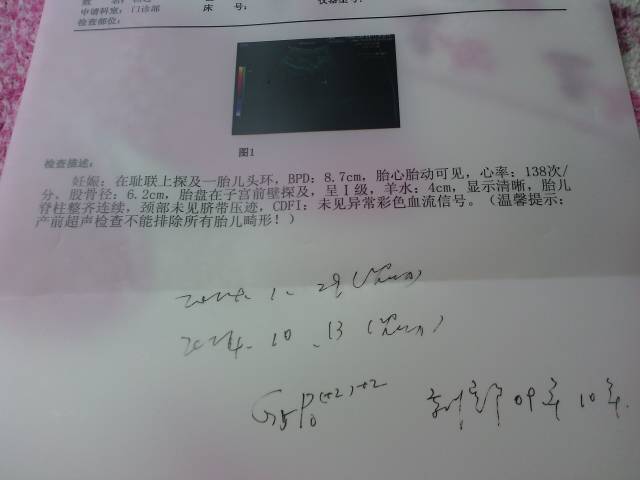 申请科室：门诊部 床 号：
检查部位：
图1
检查描述：
妊娠：在耻联上探及一胎儿头环，BPD：8.7cm，胎心胎动可见，心率：138次/
分，股骨径：6.2cm，胎盘在子宫前壁探及，呈Ⅰ级，羊水：4cm，显示清晰，胎儿
脊柱整齐连续，颈部未见脐带压迹，CDFI：未见异常彩色血流信号。（温馨提示：
产前超声检查不能排除所有胎儿畸形！）
1. 29
10 . 13
G5P0 +2
09年 10年.